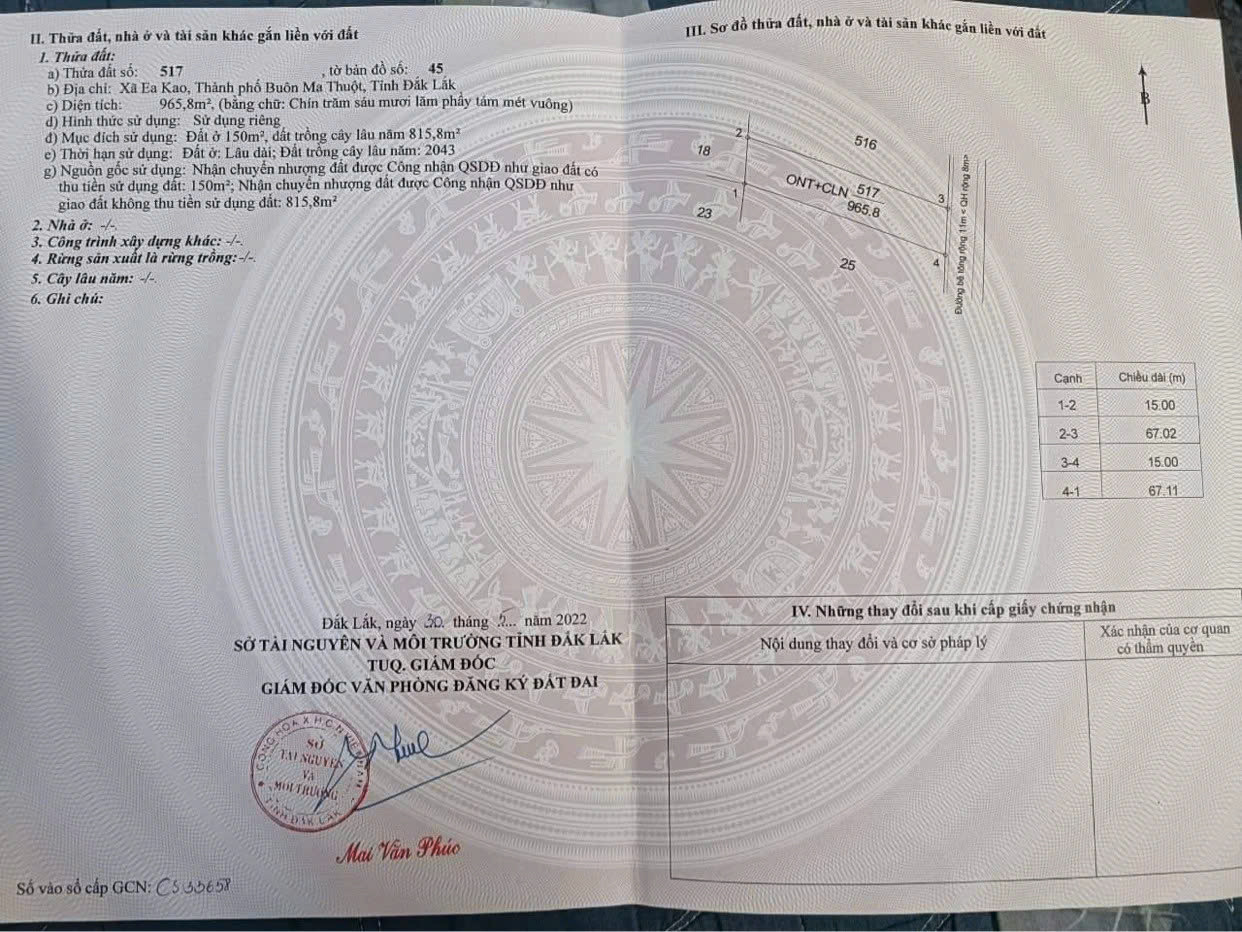 II. Thửa đất, nhà ở và tài sản khác gắn liền với đất
1. Thửa đất:
a) Thửa đất số: 517 , tờ bản đồ số: 45
b) Địa chỉ: Xã Ea Kao, Thành phố Buôn Ma Thuột, Tỉnh Đắk Lắk
c) Diện tích: 965,8m², (bằng chữ: Chín trăm sáu mươi lăm phẩy tám mét vuông)
d) Hình thức sử dụng: Sử dụng riêng
đ) Mục đích sử dụng: Đất ở 150m², đất trồng cây lâu năm 815,8m²
e) Thời hạn sử dụng: Đất ở: Lâu dài; Đất trồng cây lâu năm: 2043
g) Nguồn gốc sử dụng: Nhận chuyển nhượng đất được Công nhận QSDĐ như giao đất có
thu tiền sử dụng đất: 150m²; Nhận chuyển nhượng đất được Công nhận QSDĐ như
giao đất không thu tiền sử dụng đất: 815,8m²
2. Nhà ở: -/-.
3. Công trình xây dựng khác: -/-.
4. Rừng sản xuất là rừng trồng:-/-.
5. Cây lâu năm: -/-.
6. Ghi chú:
Đắk Lắk, ngày 30 tháng 5... năm 2022
SỞ TÀI NGUYÊN VÀ MÔI TRƯỜNG TỈNH ĐẮK LẮK
TUQ. GIÁM ĐỐC
GIÁM ĐỐC VĂN PHÒNG ĐĂNG KÝ ĐẤT ĐAI
CỘNG HÒA X.H.C.N VIỆT NAM
SỞ
TÀI NGUYÊN
VÀ
MÔI TRƯỜNG
TỈNH ĐẮK LẮK
Mai Văn Phúc
Số vào sổ cấp GCN: CS33658
III. Sơ đồ thửa đất, nhà ở và tài sản khác gắn liền với đất
B
2
18
516
1
ONT+CLN 517
965.8
3
23
25
4
Đường bê tông rộng 11m < QH rộng 8m>
Cạnh Chiều dài (m)
1-2 15.00
2-3 67.02
3-4 15.00
4-1 67.11
IV. Những thay đổi sau khi cấp giấy chứng nhận
Nội dung thay đổi và cơ sở pháp lý
Xác nhận của cơ quan
có thẩm quyền